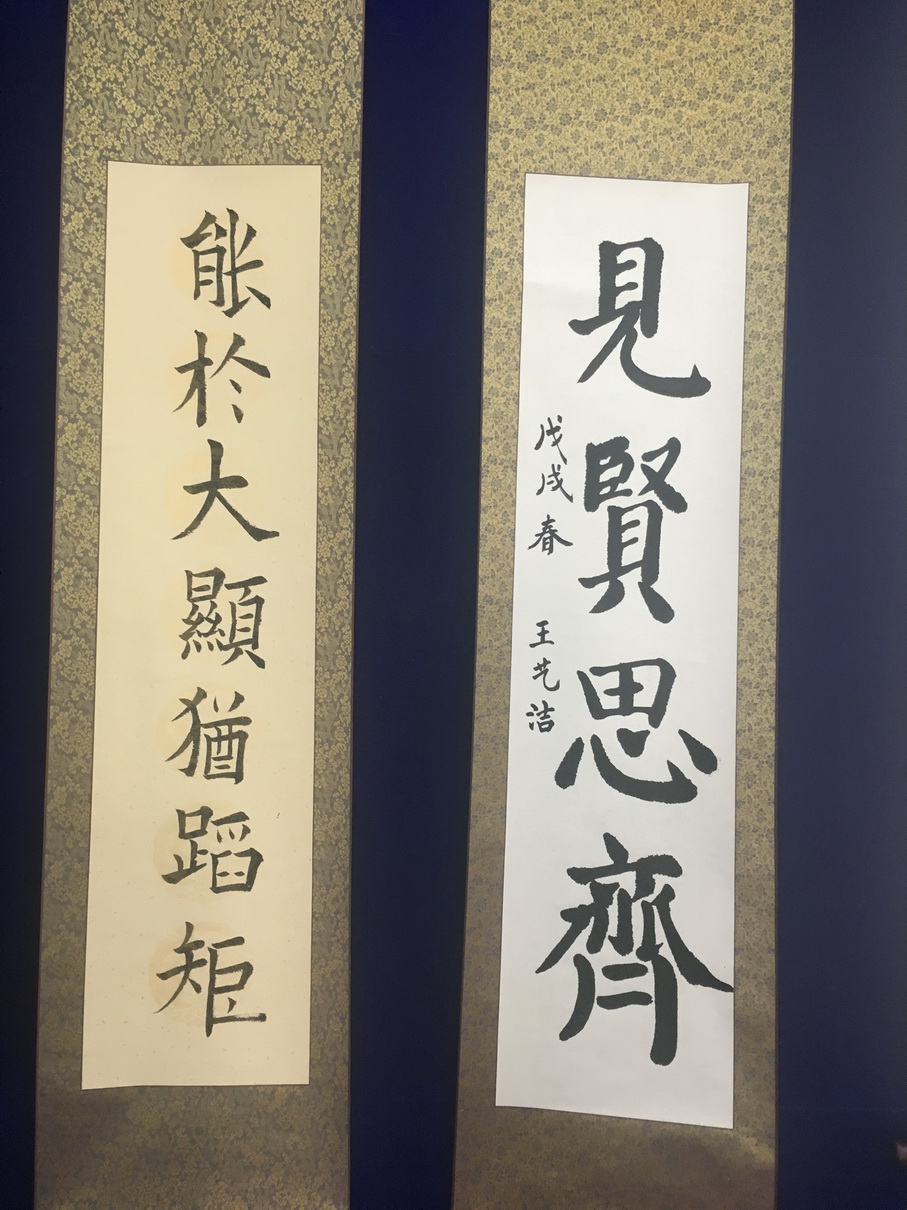 見賢思齊
戊戌春 王艺洁
能於大顯猶蹈矩